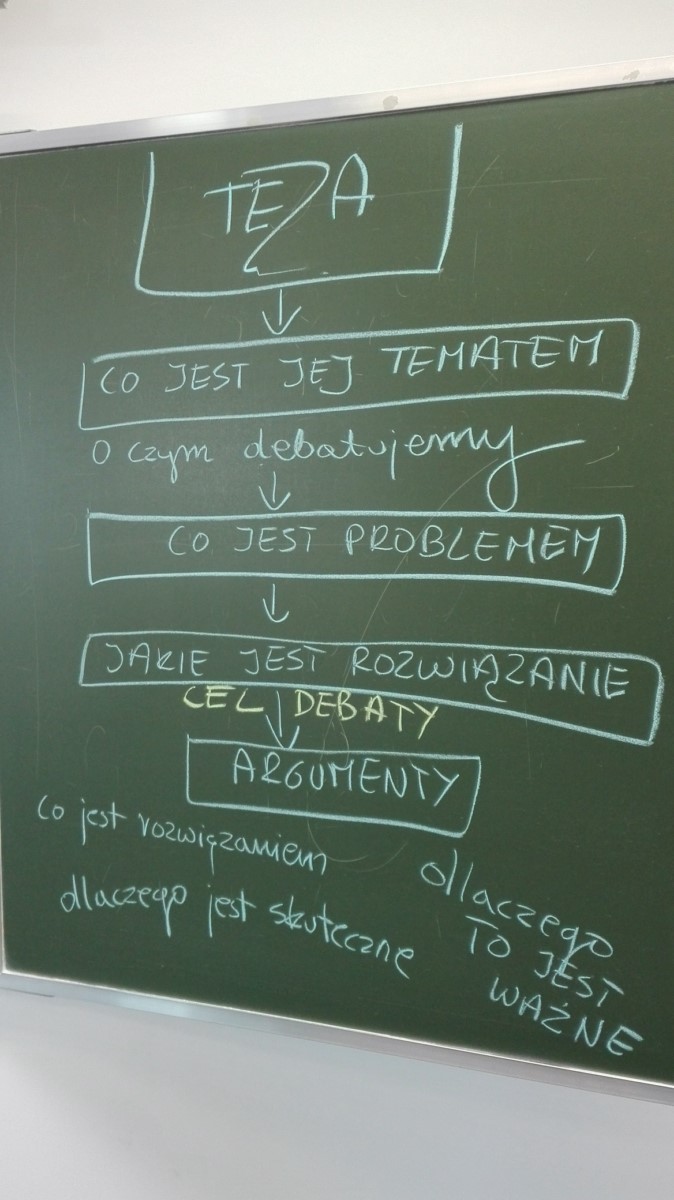 TEZA
CO JEST JEJ TEMATEM
O czym debatujemy
CO JEST PROBLEMEM
JAKIE JEST ROZWIĄZANIE
CEL DEBATY
ARGUMENTY
Co jest rozwiązaniem
dlaczego jest skuteczne
dlaczego
TO JEST
WAŻNE